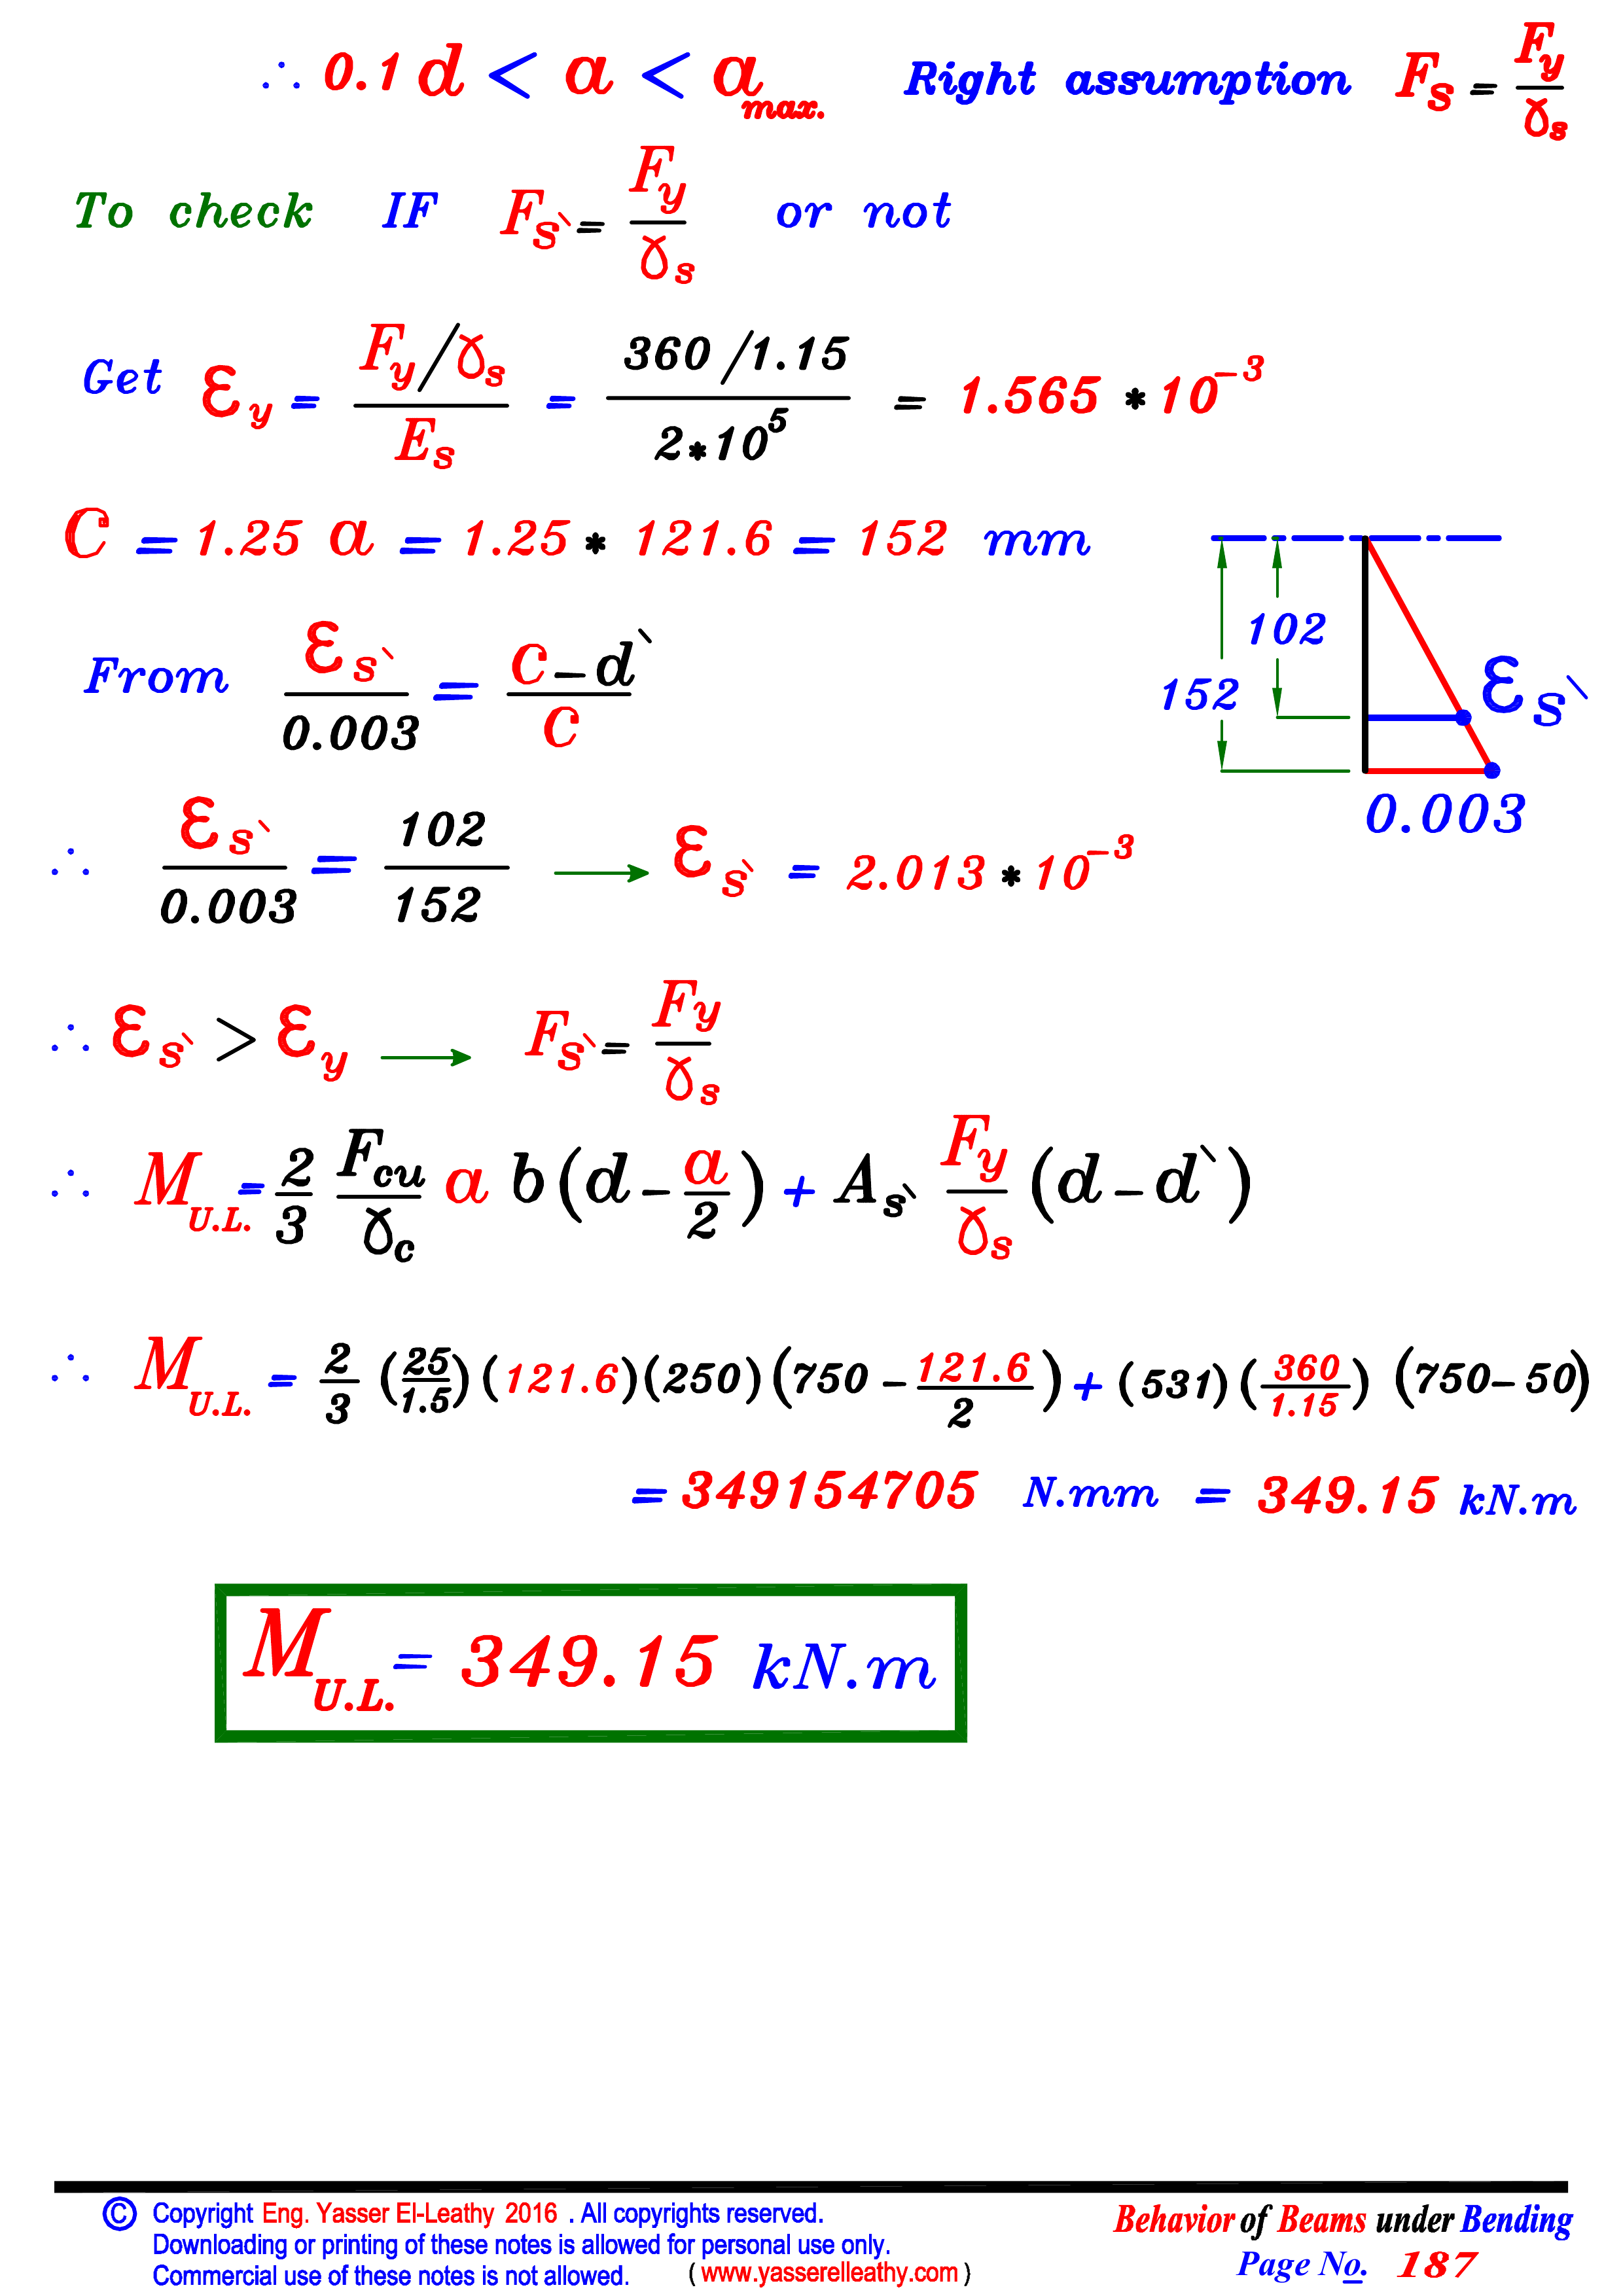 ∴ 0.1 d < a < a max. Right assumption Fs = Fy / γs
To check IF Fs` = Fy / γs or not
Get εy = Fy/γs / Es = 360/1.15 / 2*10^5 = 1.565 * 10^-3
C = 1.25 a = 1.25 * 121.6 = 152 mm
From εs` / 0.003 = C-d` / C
102
152
εs`
0.003
∴ εs` / 0.003 = 102 / 152 → εs` = 2.013 * 10^-3
∴ εs` > εy → Fs` = Fy / γs
∴ M U.L. = 2/3 Fcu/γc a b (d - a/2) + As` Fy/γs (d - d`)
∴ M U.L. = 2/3 (25/1.5) (121.6) (250) (750 - 121.6/2) + (531) (360/1.15) (750 - 50)
= 349154705 N.mm = 349.15 kN.m
M U.L. = 349.15 kN.m
© Copyright Eng. Yasser El-Leathy 2016 . All copyrights reserved.
Downloading or printing of these notes is allowed for personal use only.
Commercial use of these notes is not allowed. ( www.yasserelleathy.com )
Behavior of Beams under Bending
Page No. 187